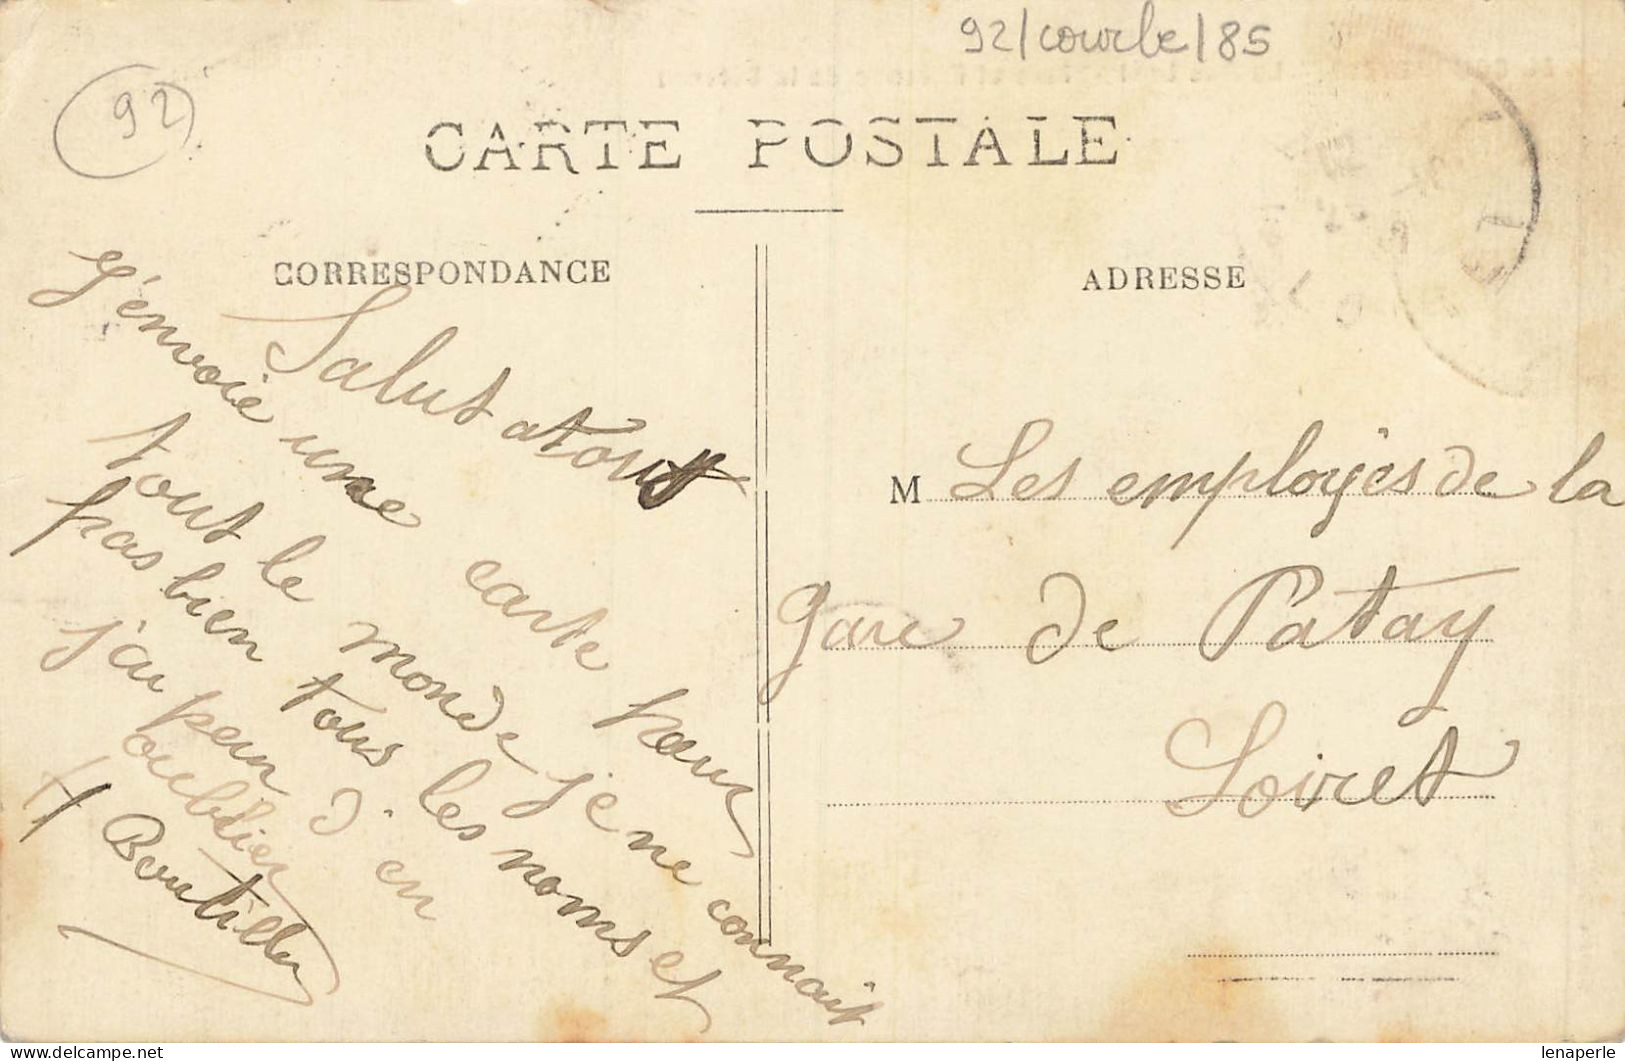 92/courbe/85
92
CARTE POSTALE
CORRESPONDANCE
ADRESSE
Salut a tous
J'envoie une carte pour
tout le monde je ne connait
pas bien tous les noms et
j'ai peur d'en
oublier
M Les employés de la
gare de Patay
Loiret
lenaperle